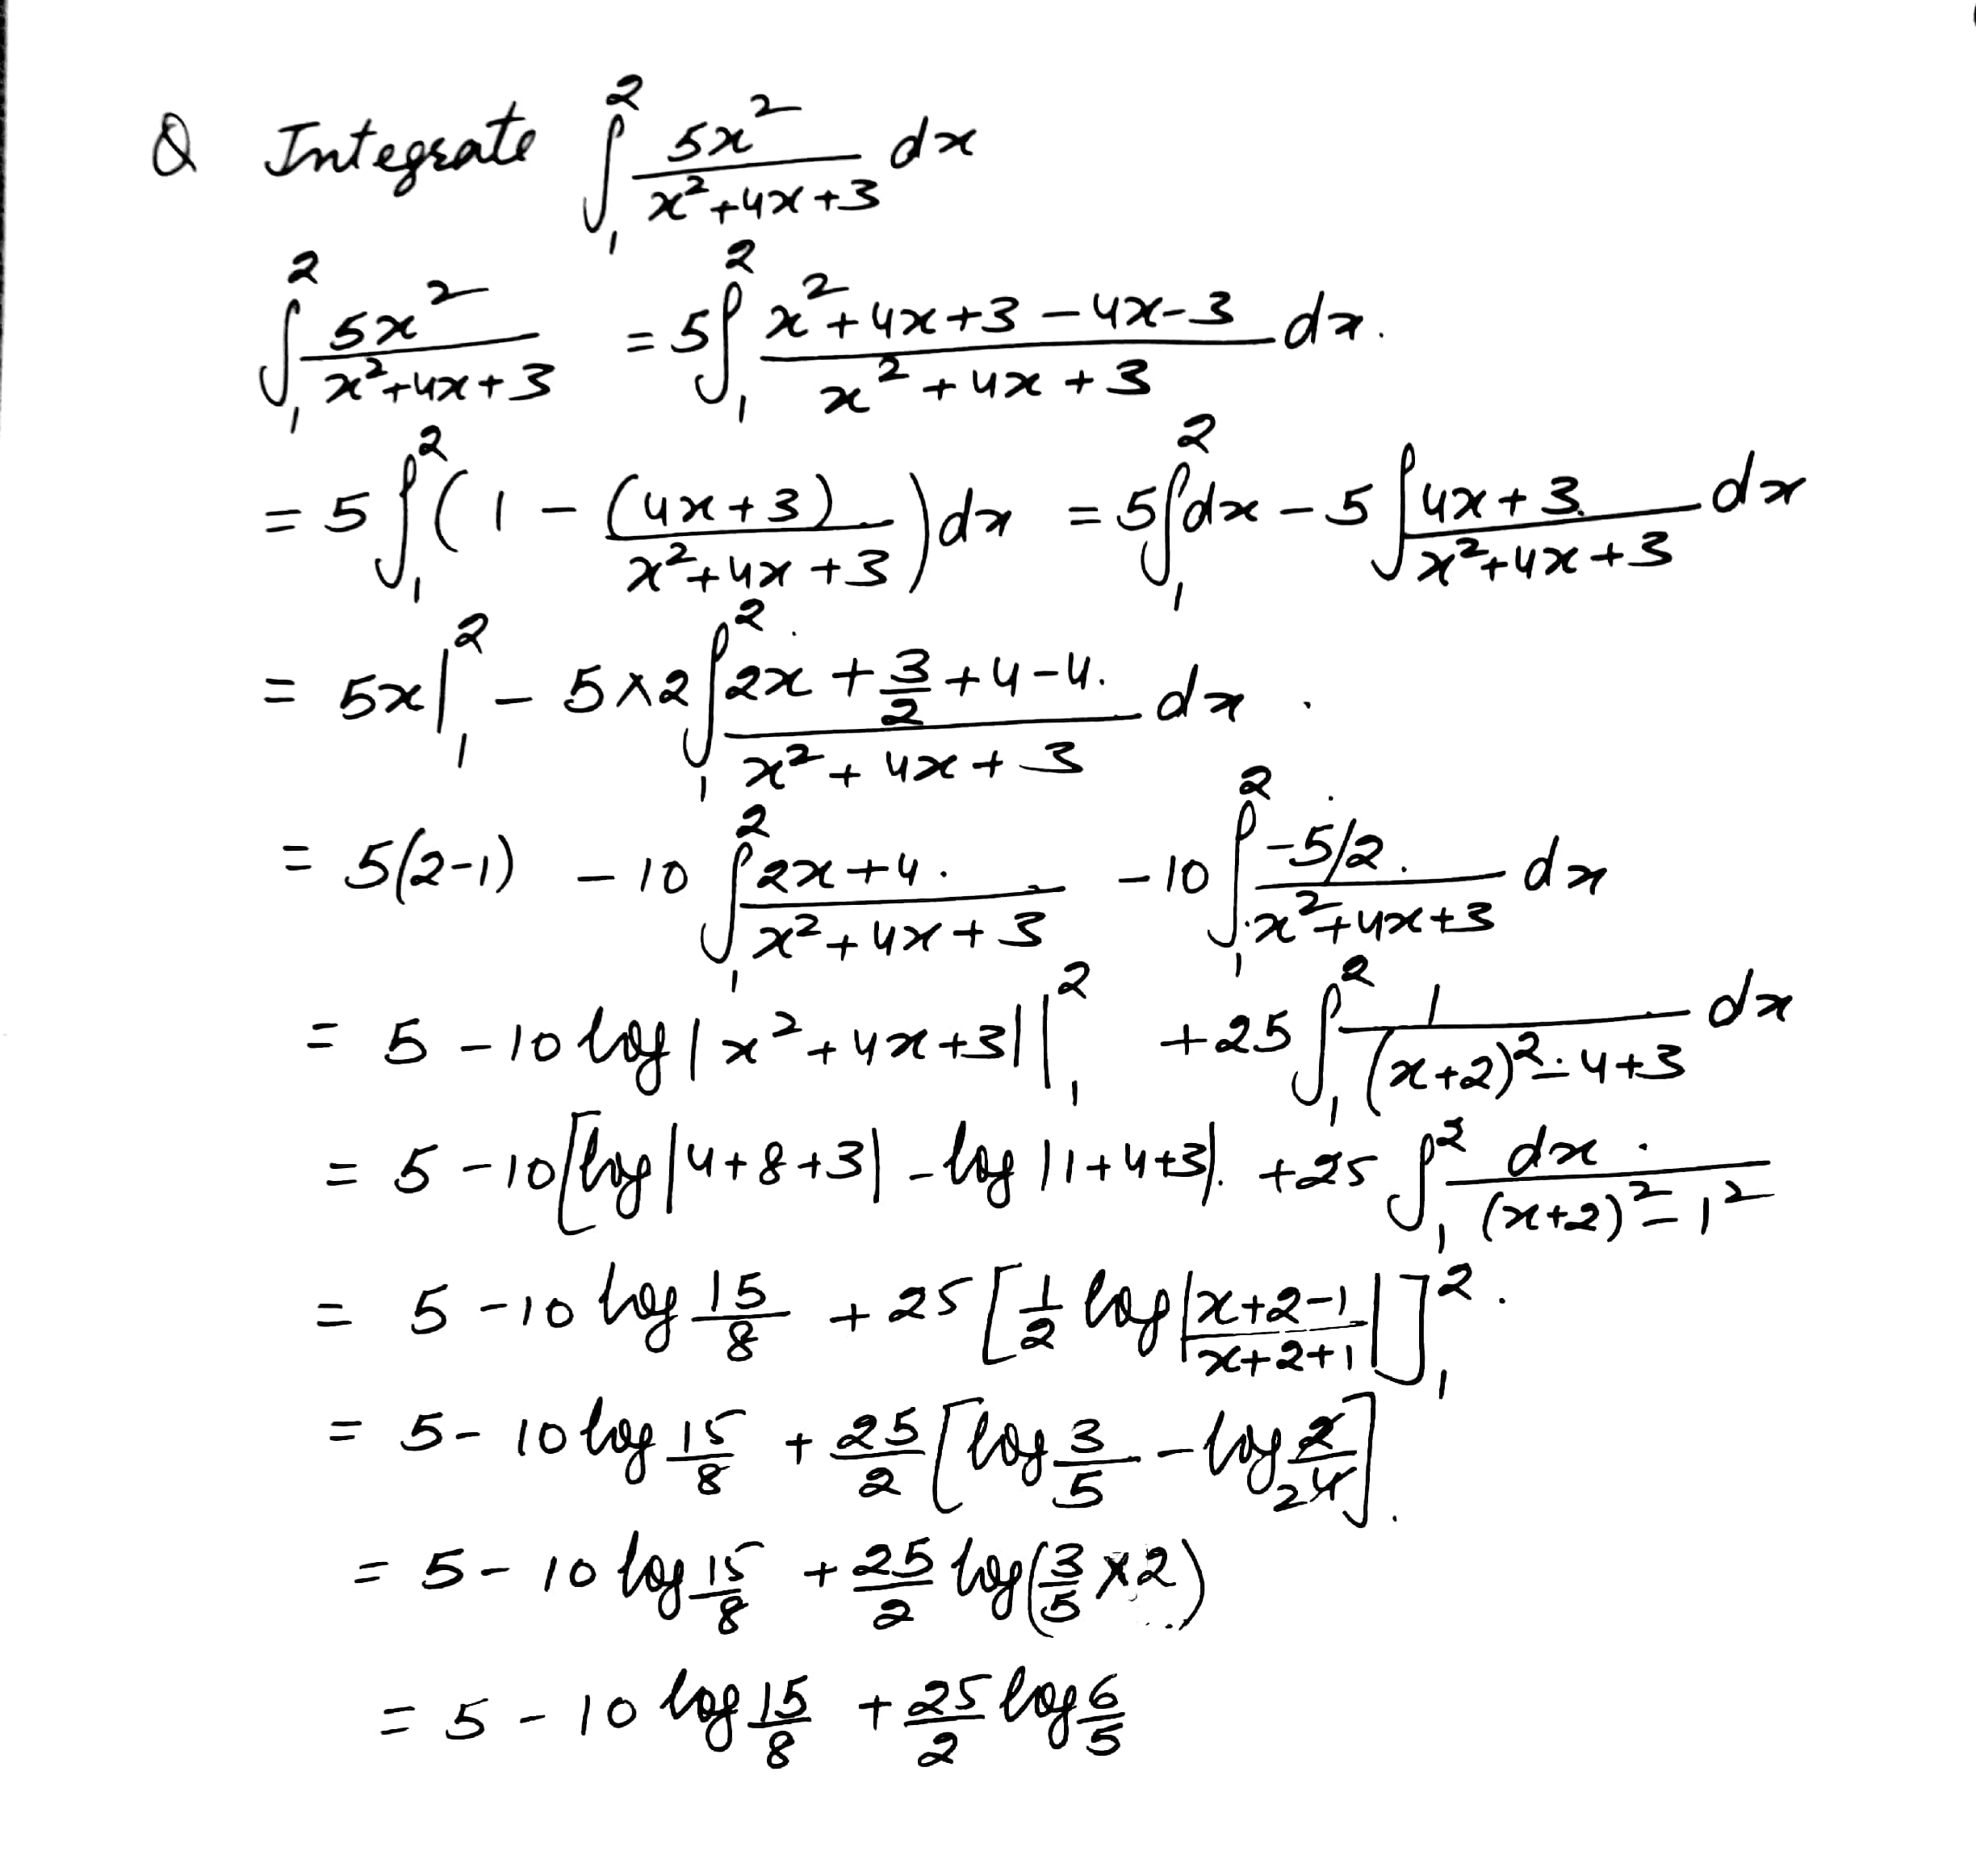 Q Integrate ∫₁² 5x²/(x²+4x+3) dx
∫₁² 5x²/(x²+4x+3) = 5∫₁² (x²+4x+3-4x-3)/(x²+4x+3) dx.
= 5∫₁² (1 - (4x+3)/(x²+4x+3)) dx = 5∫₁² dx - 5∫ (4x+3)/(x²+4x+3) dx
= 5x|₁² - 5×2∫₁² (2x + 3/2 + 4 - 4)/(x²+4x+3) dx.
= 5(2-1) - 10 ∫₁² (2x+4)/(x²+4x+3) - 10 ∫₁² (-5/2)/(x²+4x+3) dx
= 5 - 10 log|x²+4x+3||₁² + 25∫₁² 1/((x+2)²-4+3) dx
= 5 - 10[log|4+8+3| - log|1+4+3|. + 25 ∫₁² dx/((x+2)²-1²)
= 5 - 10 log 15/8 + 25 [1/2 log|(x+2-1)/(x+2+1)|]₁².
= 5 - 10 log 15/8 + 25/2 [log 3/5 - log 2/4 2].
= 5 - 10 log 15/8 + 25/2 log(3/5 × 2)
= 5 - 10 log 15/8 + 25/2 log 6/5